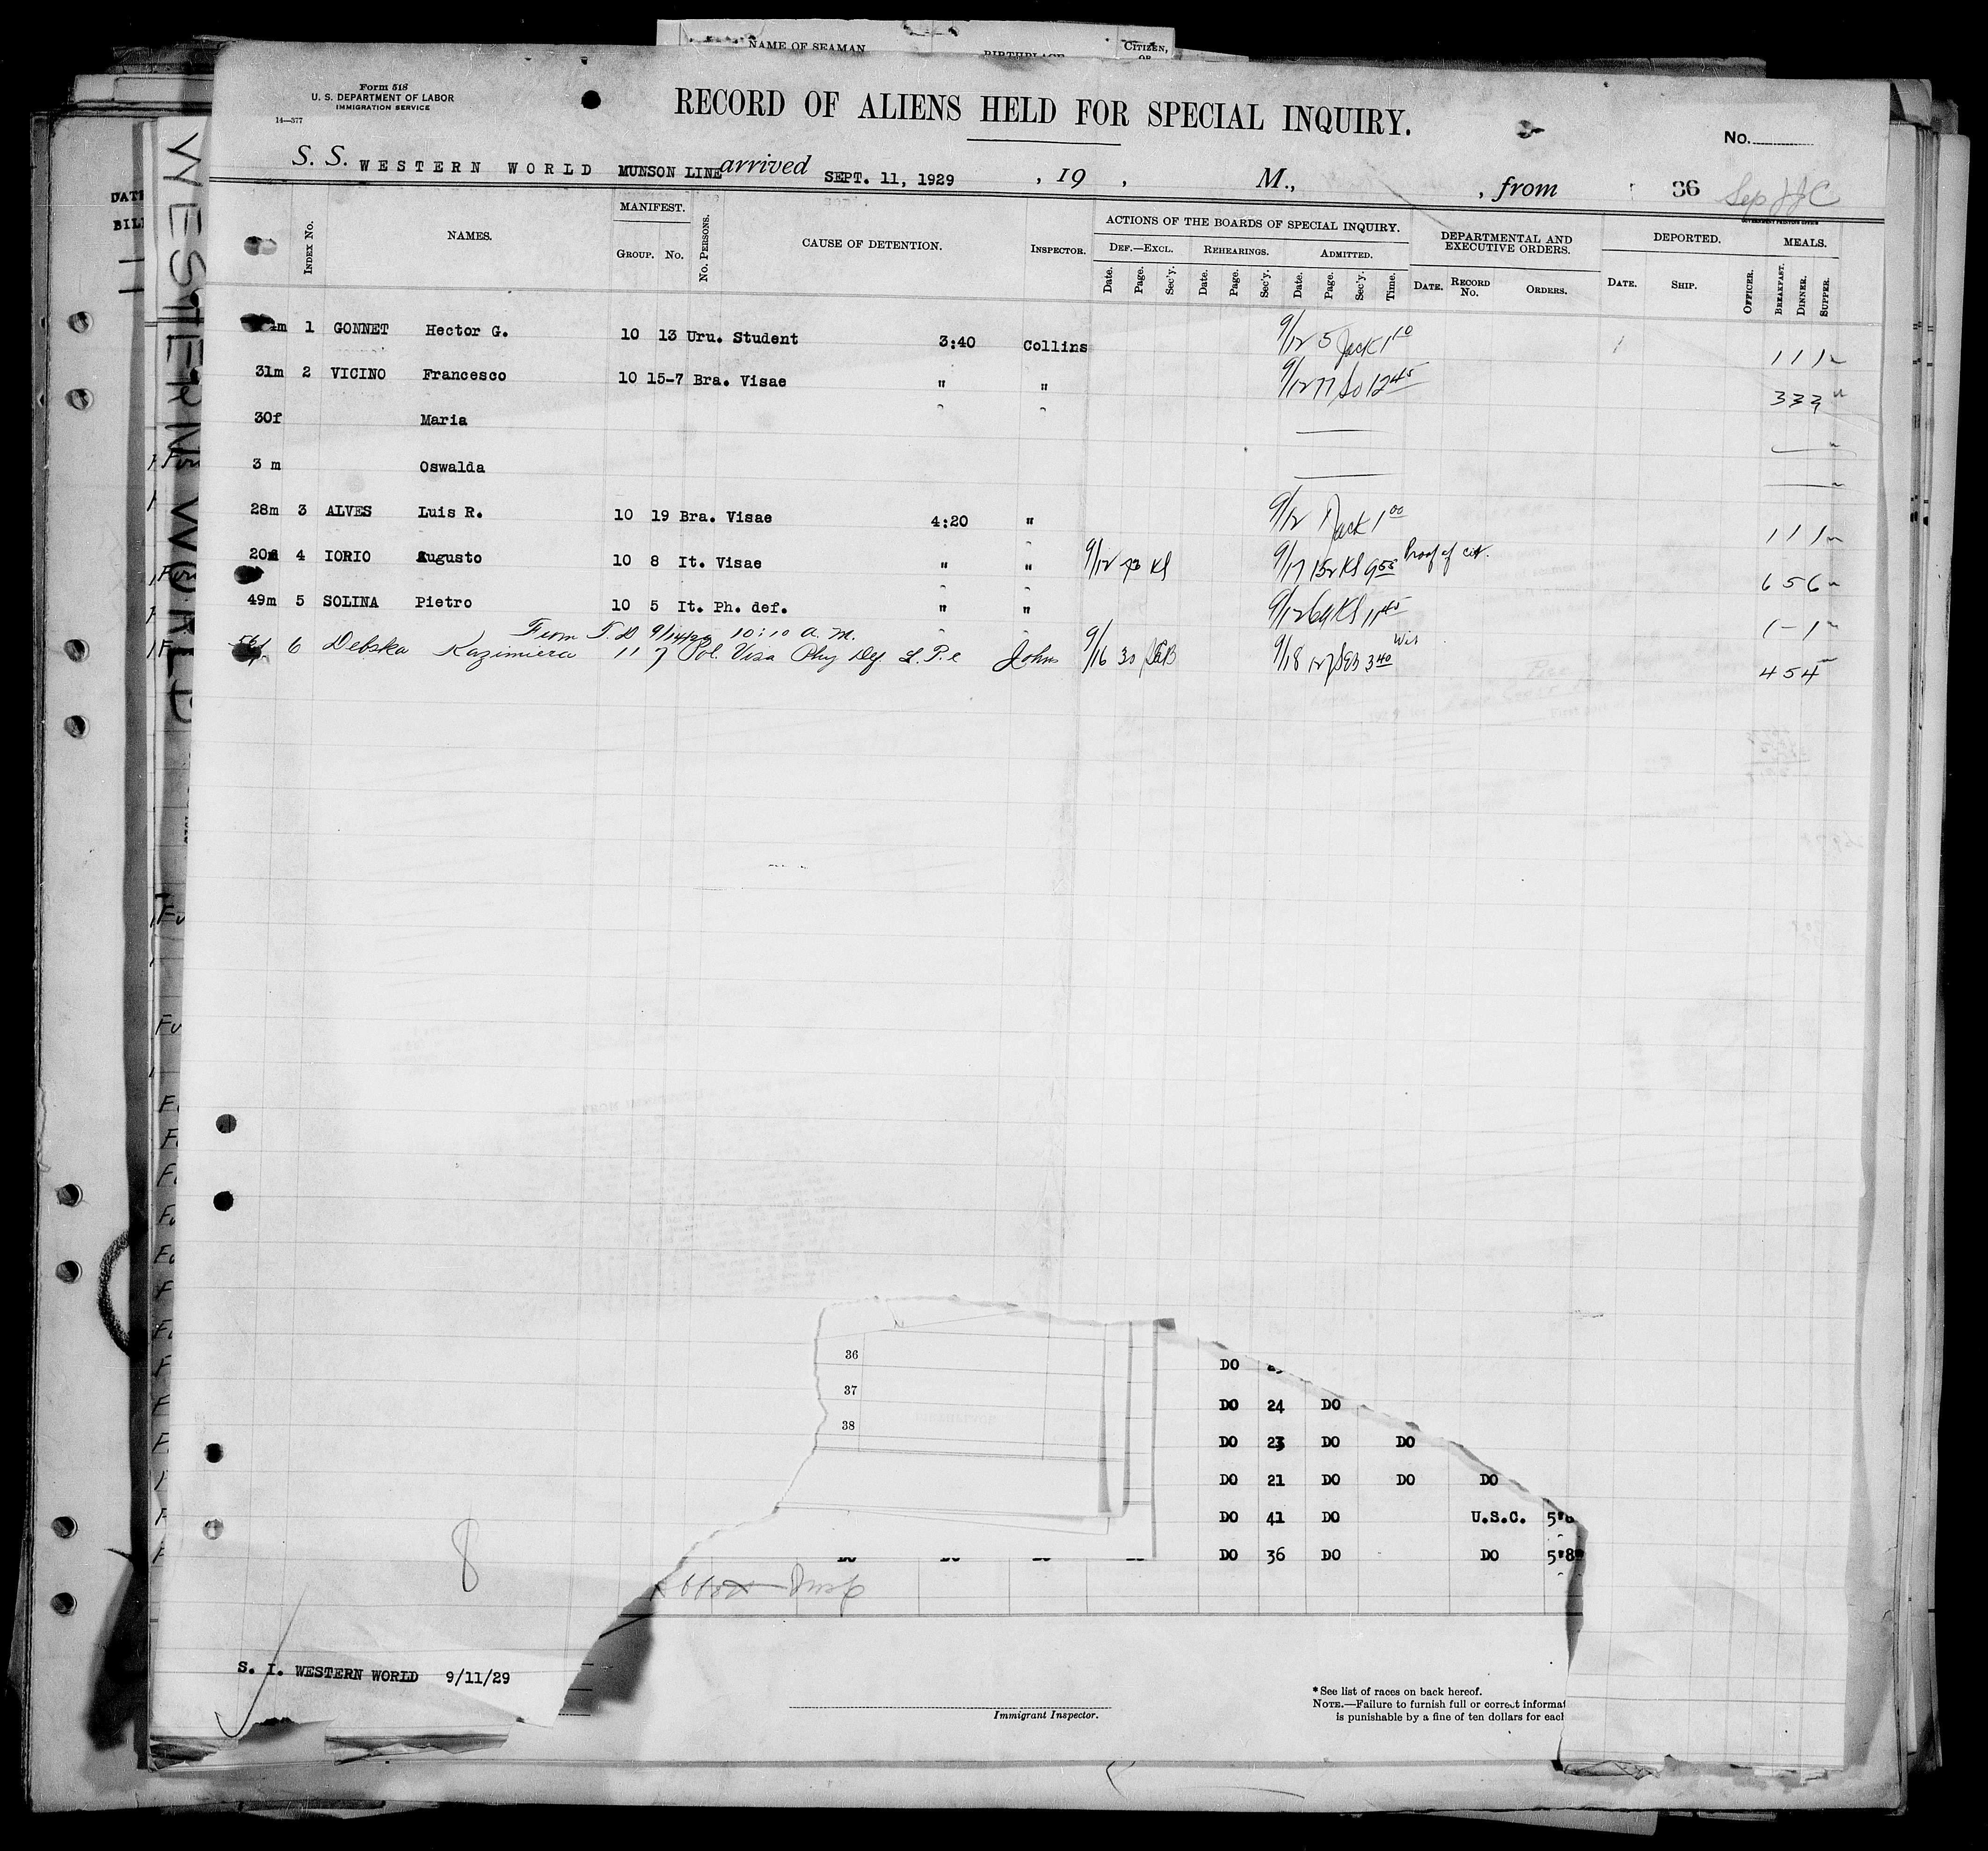 NAME OF SEAMAN BIRTHPLACE CITIZEN, OR
Form 518
U. S. DEPARTMENT OF LABOR
IMMIGRATION SERVICE
14—377
RECORD OF ALIENS HELD FOR SPECIAL INQUIRY.
No.
S. S. WESTERN WORLD MUNSON LINE arrived SEPT. 11, 1929 , 19 , M., , from 86 Sep JJC
GOVERNMENT PRINTING OFFICE
INDEX No. NAMES. MANIFEST. GROUP. No. No. PERSONS. CAUSE OF DETENTION. INSPECTOR. ACTIONS OF THE BOARDS OF SPECIAL INQUIRY. DEPARTMENTAL AND EXECUTIVE ORDERS. DEPORTED. MEALS.
DEF.—EXCL. REHEARINGS. ADMITTED.
Date. Page. Sec'y. Date. Page. Sec'y. Date. Page. Sec'y. Time. DATE. RECORD No. ORDERS. DATE. SHIP. OFFICER. BREAKFAST. DINNER. SUPPER.
4m 1 GONNET Hector G. 10 13 Uru. Student 3:40 Collins 9/12 5 Jack 1 10 1 1 1
31m 2 VICINO Francesco 10 15-7 Bra. Visae " " 9/12 77 So 12 45 3 3 3
30f Maria
3 m Oswalda
28m 3 ALVES Luis R. 10 19 Bra. Visae 4:20 " 9/12 1 Jack 1 00 1 1 1
20m 4 IORIO Augusto 10 8 It. Visae " " 9/12 73 KS 9/17 152 KS 9 55 Proof of cit. 6 5 6
49m 5 SOLINA Pietro 10 5 It. Ph. def. " " 9/12 69 KS 11 45 1 - 1
From T.D 9/14/29 10:10 a.m.
56f 6 Debska Kazimiera 11 7 Pol. Visa Phy Def L.P.C Johns 9/16 30 SEB 9/18 127 SEB 3 40 4 5 4
WESTERN WORLD
DATE
BILL
36
37
38
DO
DO 24 DO
DO 23 DO DO
DO 21 DO DO DO
DO 41 DO U.S.C.
DO 36 DO DO
8
S. I. WESTERN WORLD 9/11/29
Immigrant Inspector.
* See list of races on back hereof.
NOTE.—Failure to furnish full or correct informat
is punishable by a fine of ten dollars for each